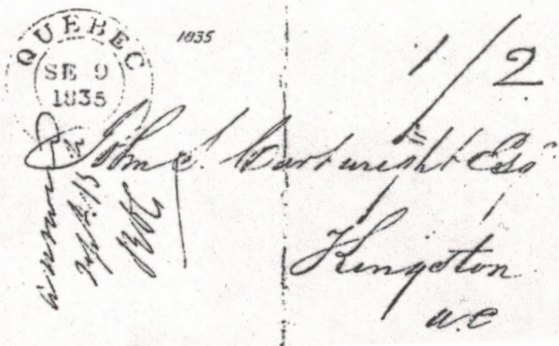 QUEBEC
SE 9
1835
1835
1/2
John S. Cartwright Esqr
Kingston
u.c